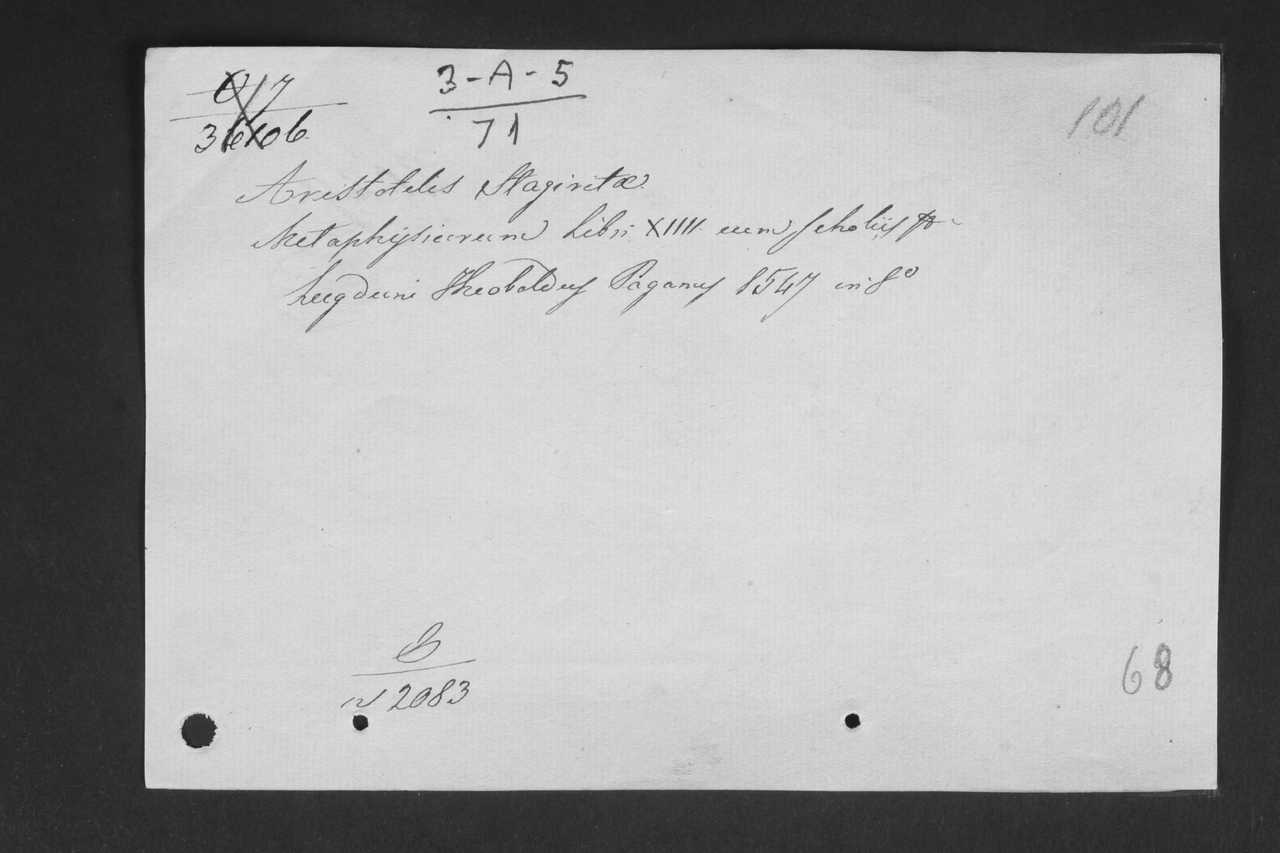 3-A-5
71
101
Aristotelis Stagiritæ
Metaphysicorum Libri XIIII cum scholiis
Lugduni Theobaldus Paganus 1547 in 8º
B
N 2083
68